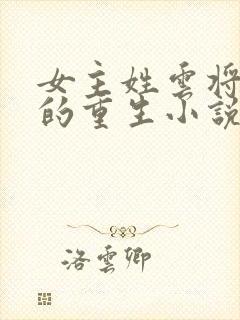 女主姓雲将
的重生小說
洛雲卿